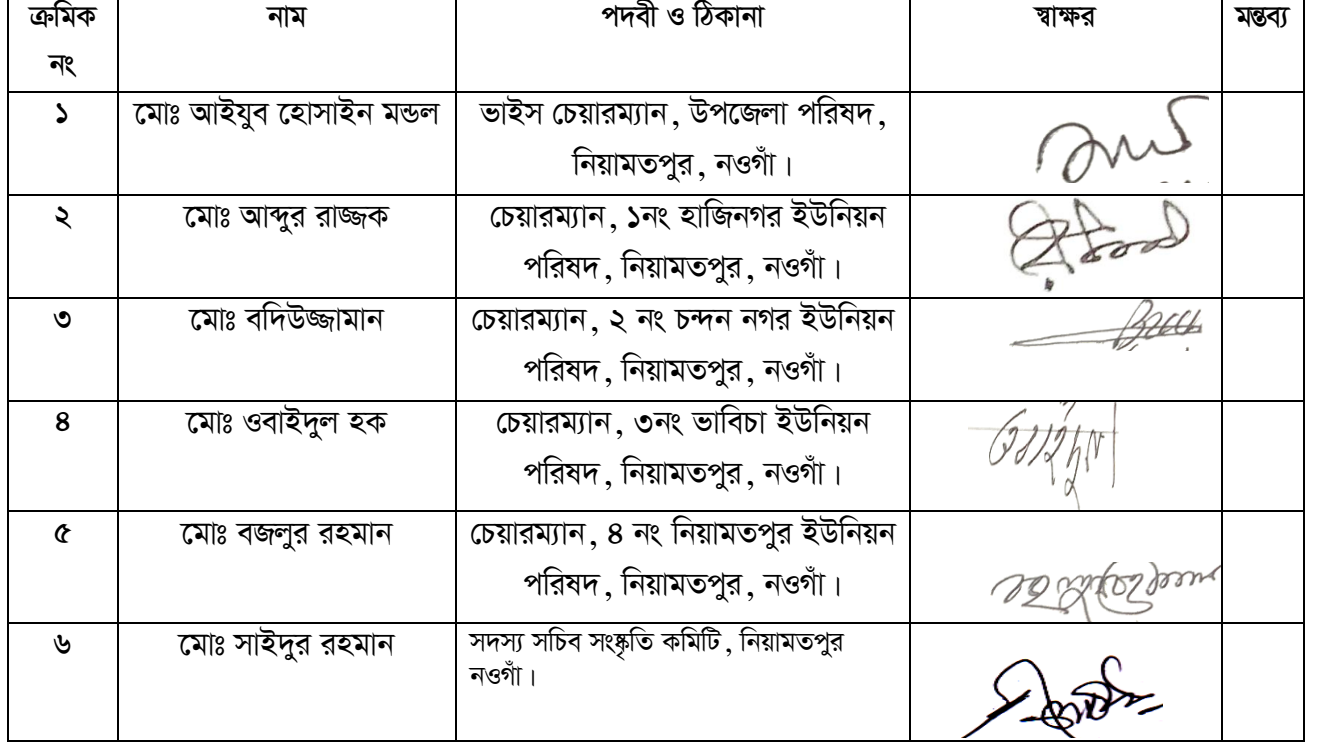 ক্রমিক নাম পদবী ও ঠিকানা স্বাক্ষর মন্তব্য
নং
১ মোঃ আইযুব হোসাইন মন্ডল ভাইস চেয়ারম্যান, উপজেলা পরিষদ,
নিয়ামতপুর, নওগাঁ।
২ মোঃ আব্দুর রাজ্জক চেয়ারম্যান, ১নং হাজিনগর ইউনিয়ন
পরিষদ, নিয়ামতপুর, নওগাঁ।
৩ মোঃ বদিউজ্জামান চেয়ারম্যান, ২ নং চন্দন নগর ইউনিয়ন
পরিষদ, নিয়ামতপুর, নওগাঁ।
৪ মোঃ ওবাইদুল হক চেয়ারম্যান, ৩নং ভাবিচা ইউনিয়ন
পরিষদ, নিয়ামতপুর, নওগাঁ।
ওবাইদুল
৫ মোঃ বজলুর রহমান চেয়ারম্যান, ৪ নং নিয়ামতপুর ইউনিয়ন
পরিষদ, নিয়ামতপুর, নওগাঁ।
৬ মোঃ সাইদুর রহমান সদস্য সচিব সংষ্কৃতি কমিটি, নিয়ামতপুর
নওগাঁ।